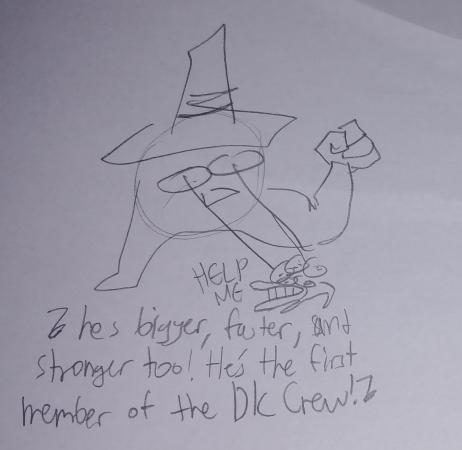 HELP
ME
he's bigger, faster, and
stronger too! He's the first
member of the DK Crew!